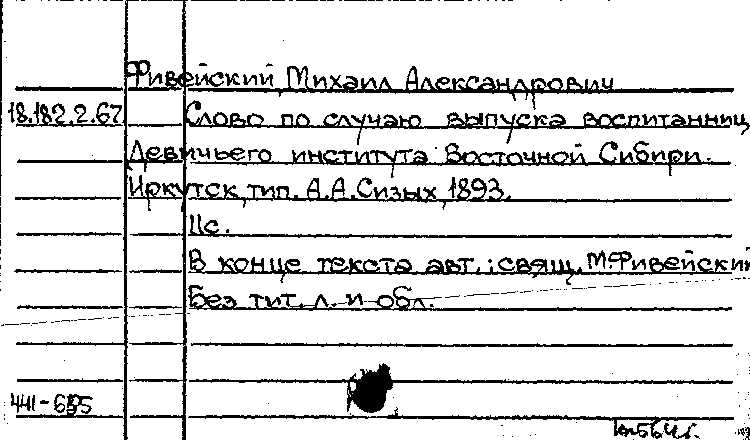 Фивейский, Михаил Александрович
18.182.2.67 Слово по случаю выпуска воспитанниц
Девичьего института Восточной Сибири.
Иркутск, тип. А.А.Сизых, 1893.
11с.
В конце текста авт.: свящ. М.Фивейский
Без тит. л. и обл.